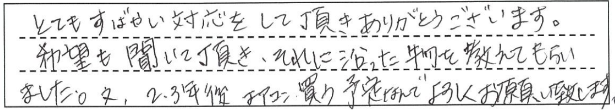 とてもすばやい対応をして頂きありがとうございます。
希望も聞いて頂き、それに沿った物を教えてもらい
ました。又、2.3年後エアコン買う予定なんでよろしくお願い致します